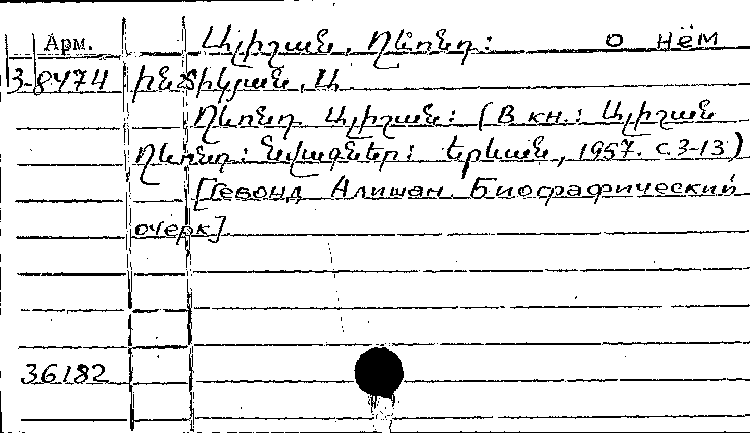 Арм. Ալիշան, Ղևոնդ: о нём
3-8474 Ինճիկյան, Ա.
Ղևոնդ Ալիշան: (В кн.: Ալիշան
Ղևոնդ: Նվագներ: Երևան, 1957. с. 3-13)
[Гевонд Алишан. Биографический
очерк].
36182